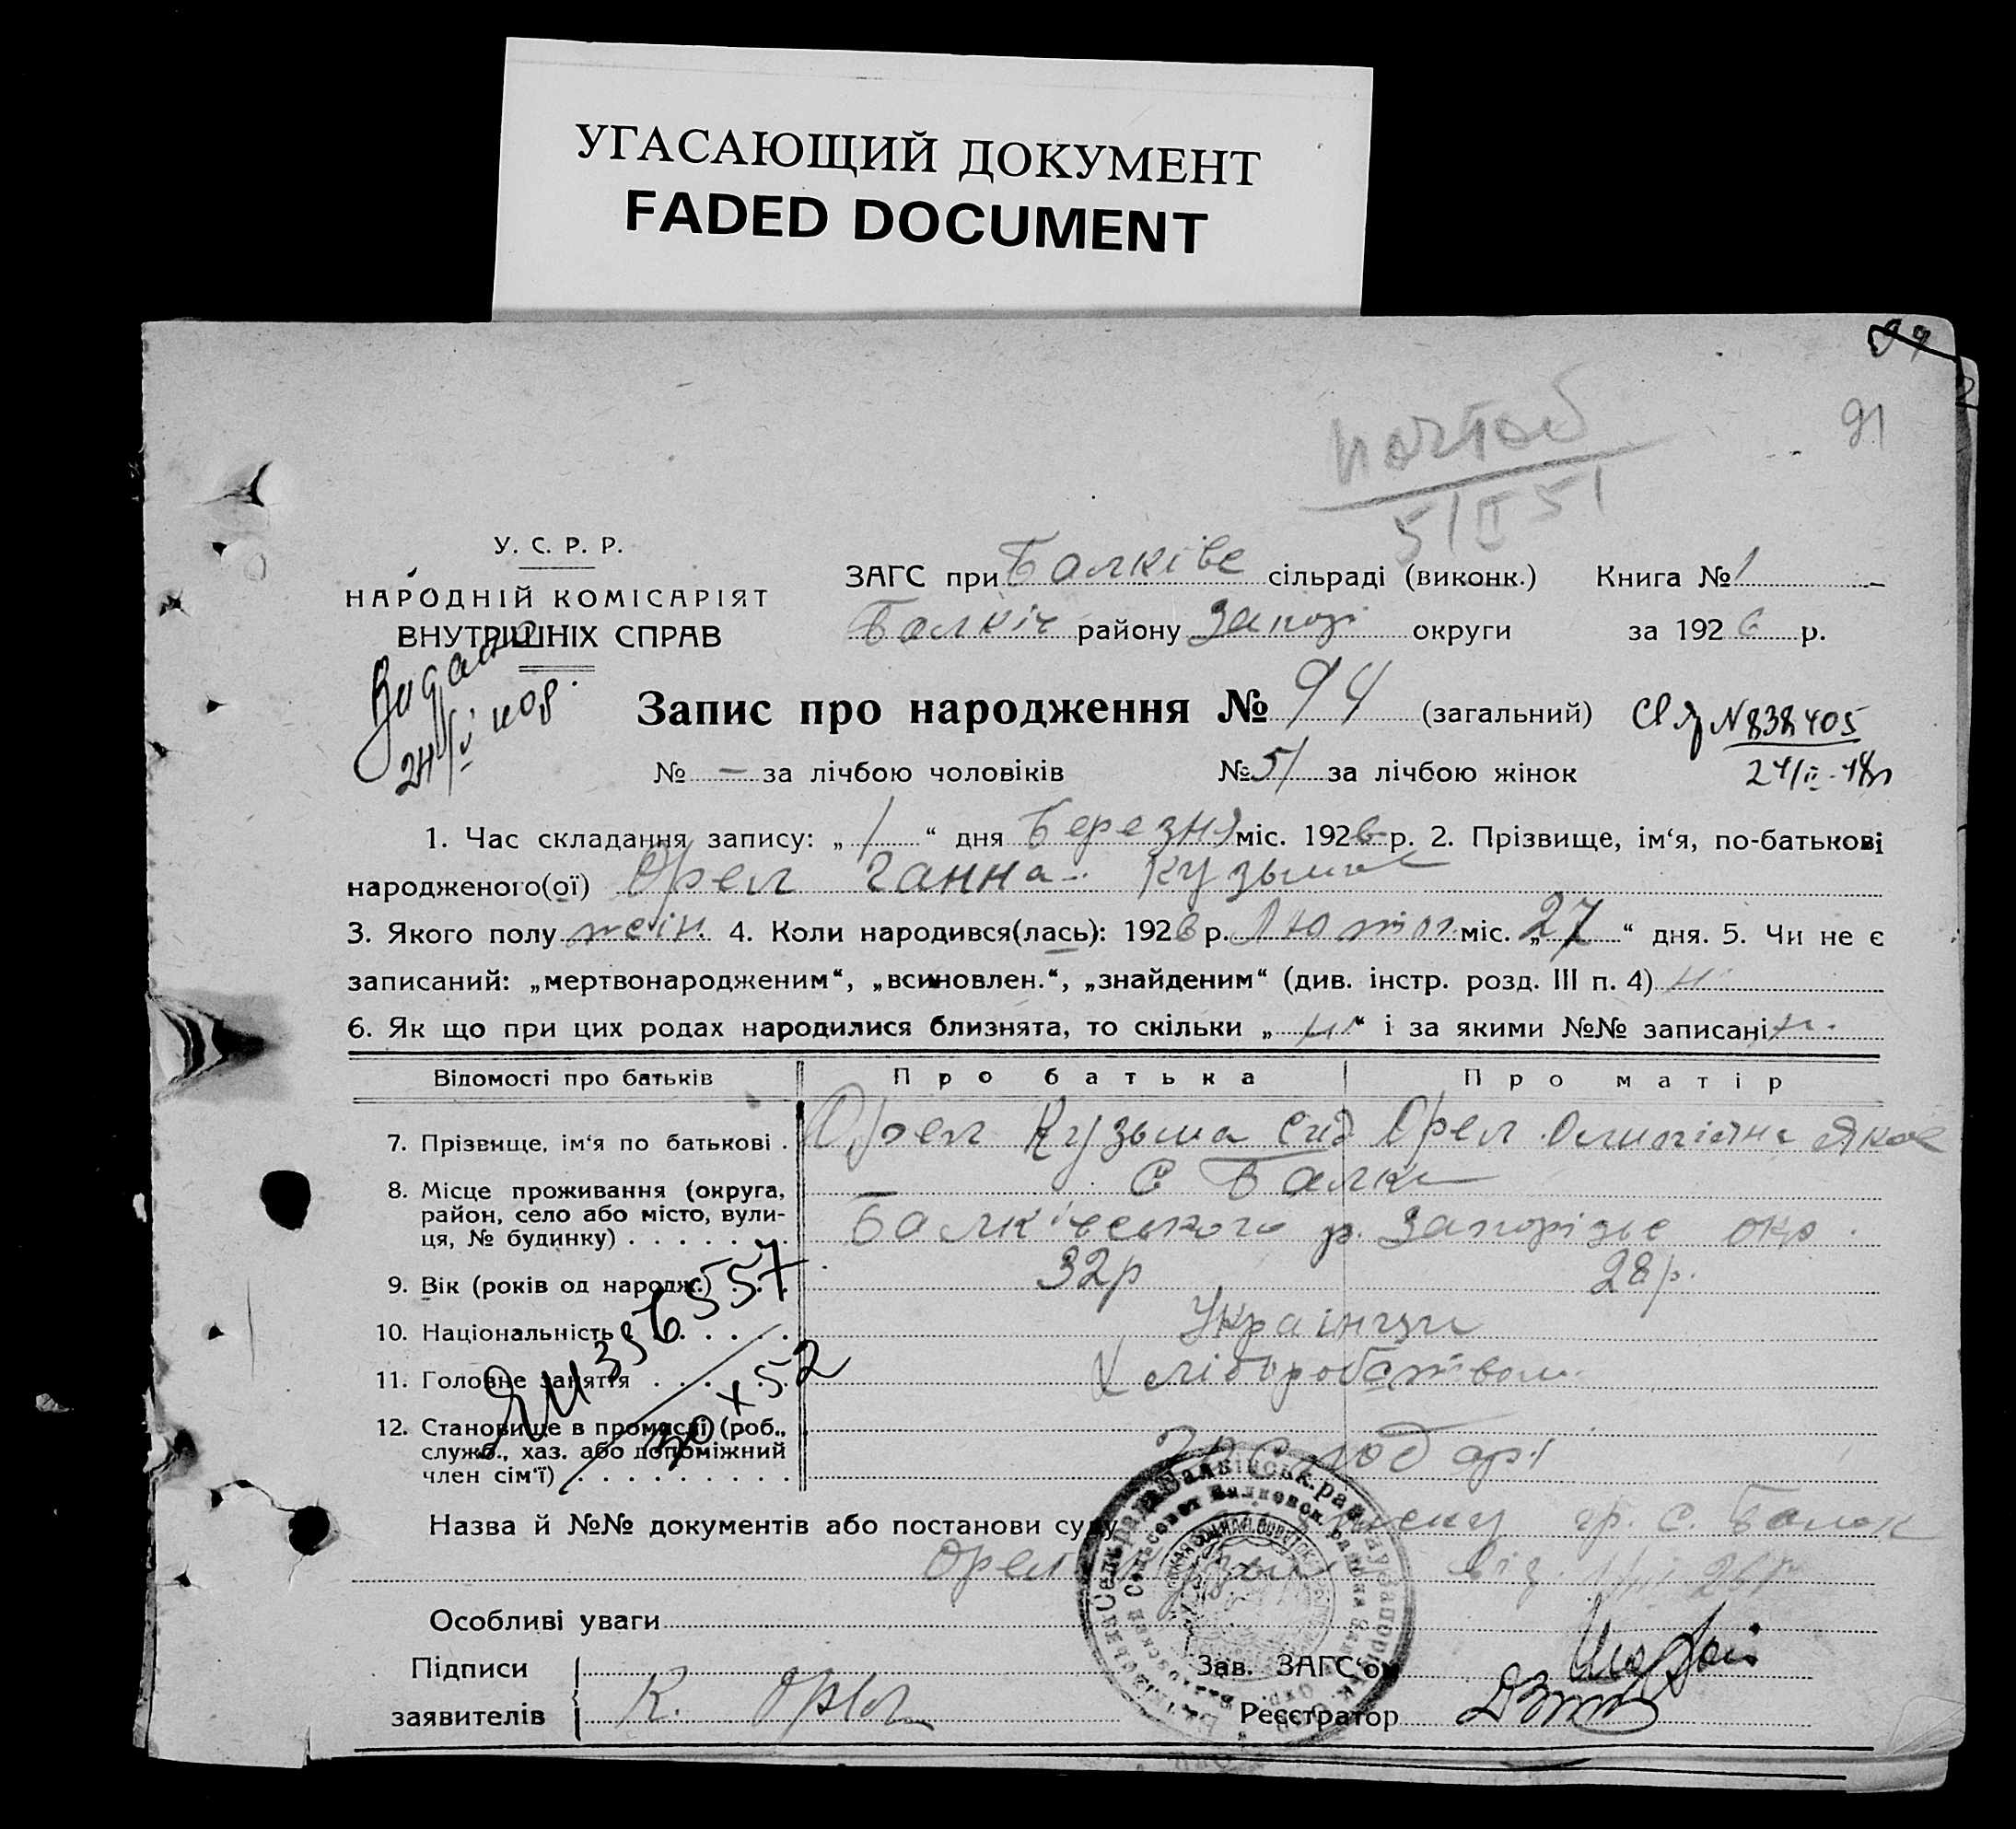 УГАСАЮЩИЙ ДОКУМЕНТ
FADED DOCUMENT
91
5/II 51
У. С. Р. Р.
НАРОДНІЙ КОМІСАРІЯТ
ВНУТРІШНІХ СПРАВ
ЗАГС при Балківс сільраді (виконк.) Книга № 1
Балкіч району Запорі округи за 1926 р.
Видано
Запис про народження № 94 (загальний)
N 838405
24/II-48
№ — за лічбою чоловіків № 51 за лічбою жінок
1. Час складання запису: „ 1 “ дня Березня міс. 1926 р. 2. Прізвище, ім‘я, по-батькові
народженого(ої) Орел Ганна Кузьмов
3. Якого полу жін. 4. Коли народився(лась): 1926 р. Лютог міс. „ 27 “ дня. 5. Чи не є
записаний: „мертвонародженим“, „всиновлен.“, „знайденим“ (див. інстр. розд. III п. 4) н
6. Як що при цих родах народилися близнята, то скільки „ н “ і за якими №№ записані н.
Відомості про батьків Про батька Про матір
7. Прізвище, ім‘я по батькові . Орел Кузьма Сид Орел Яков
8. Місце проживання (округа, с Балки
район, село або місто, вули-
ця, № будинку) . . . . . . . Балківського р. Запорізьс окр.
9. Вік (років од народж.) . . . 32р 28р.
356557
10. Національність . . . . . . Українці
11. Головне заняття . . . . . . Хліборобством
X 52
12. Становище в промислі) (роб., Господарі
служб., хаз. або допоміжний
член сім‘ї) . . . . . . . . . .
Назва й №№ документів або постанови суду гр. с. Балок
Орел від 26р
Особливі уваги
Підписи
заявителів К. Орел
Зав. ЗАГС‘ом
Реєстратор